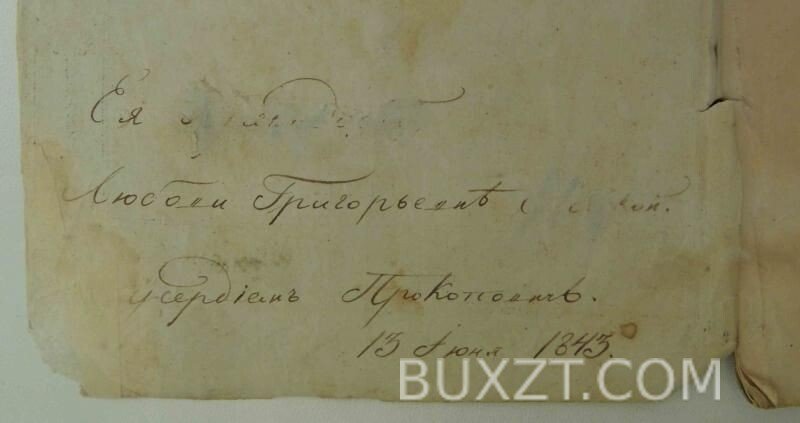 Ея
Любови Григорьевнѣ
усердіемъ Прокоповичъ.
13 Июня 1843.
BUXZT.COM